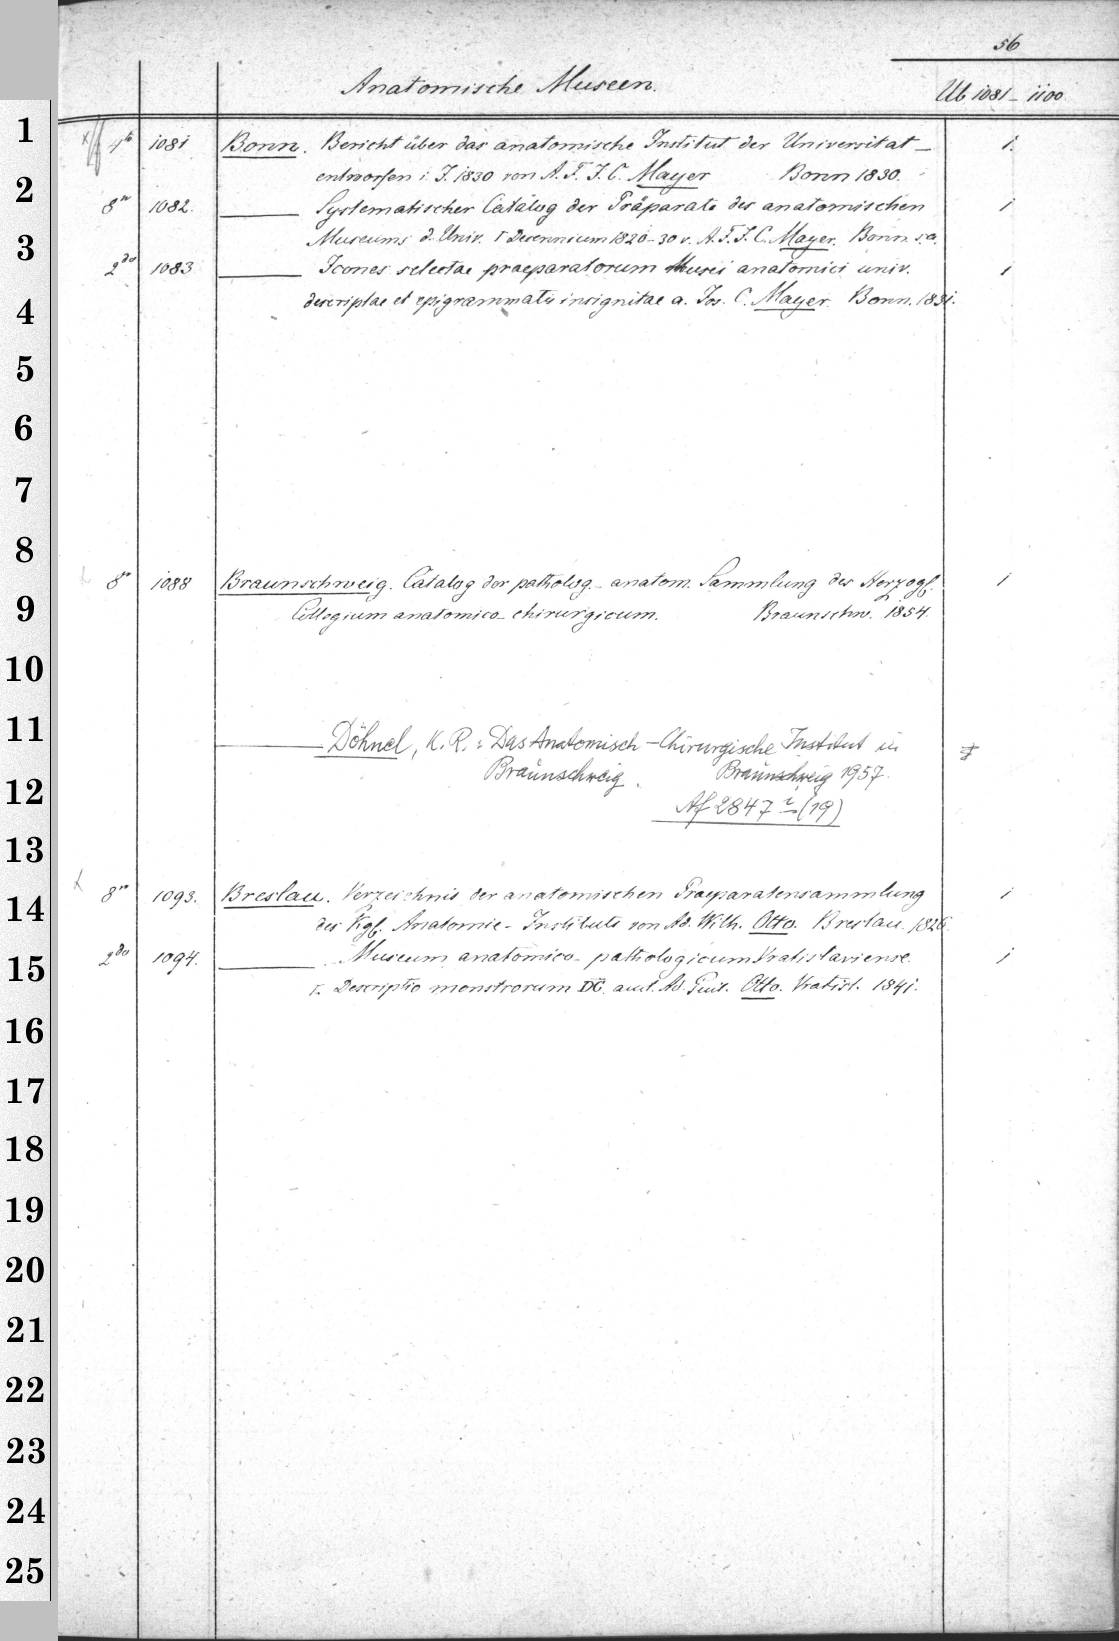 56
Anatomische Museen.
Ub 1081 - 1100
1
4to 1081 Bonn. Bericht über das anatomische Institut der Universitat - 1.
2
entworfen i. J. 1830 von A. F. J. C. Mayer Bonn 1830.
8vo 1082. Systematischer Catalog der Präparate des anatomischen 1
3
Museums d. Univ. I Decennium 1820-30 v. A. F. J. C. Mayer. Bonn s. a.
2do 1083 Icones selectae praeparatorum Musei anatomici univ. 1
4
descriptae et epigrammatis insignitae a. Jos. C. Mayer. Bonn. 1831.
5
6
7
8
8vo 1088 Braunschweig. Catalog der patholog.- anatom. Sammlung des Herzogl. 1
9
Collegium anatomico- chirurgicum. Braunschw. 1854.
10
11
Döhnel, K. R.: Das Anatomisch-Chirurgische Institut in
12
Braunschweig. Braunschweig 1957.
Af 2847 (19)
13
14
8vo 1093. Breslau. Verzeichnis der anatomischen Praeparatensammlung 1
des Kgl. Anatomie- Instituts von Ad. Wilh. Otto. Breslau. 1826.
15
2do 1094. Museum anatomico- pathologicum Vratislaviense. 1
Descriptio monstrorum DC. auct. Ad. Guil. Otto. Vratisl. 1841.
16
17
18
19
20
21
22
23
24
25